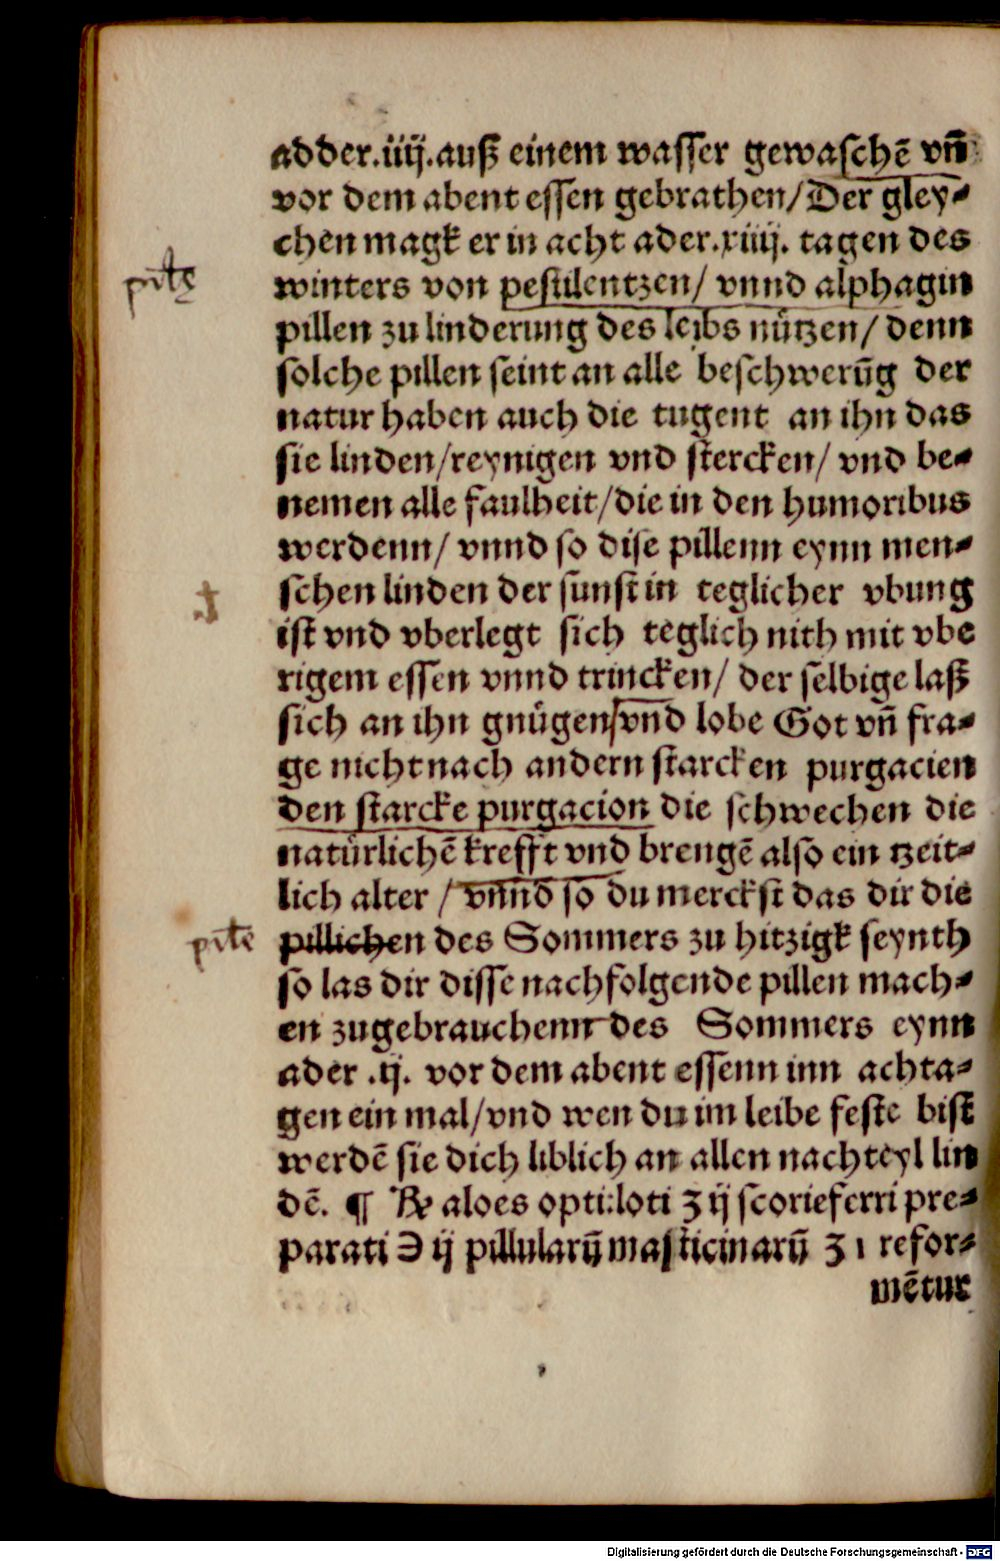 adder.iiij.auß einem wasser gewaschē vñ
vor dem abent essen gebrathen/Der gley⸗
chen magk er in acht ader.xiiij. tagen des
pil̄e
winters von pestilentzen/ vnnd alphagin
pillen zu linderung des leibs nützen/ denn
solche pillen seint an alle beschwerūg der
natur haben auch die tugent an ihn das
sie linden/reynigen vnd stercken/ vnd be⸗
nemen alle faulheit/die in den humoribus
werdenn/ vnnd so dise pillenn eynn men⸗
schen linden der sunst in teglicher vbung
ist vnd vberlegt sich teglich nith mit vbe
rigem essen vnnd trincken/ der selbige laß
sich an ihn gnügen/vnd lobe Got vñ fra⸗
ge nicht nach andern starcken purgacien
den starcke purgacion die schwechen die
natürlichē krefft vnd brengē also ein tzeit⸗
lich alter / vnnd so du merckst das dir die
pil̄e
pillichen des Sommers zu hitzigk seynth
so las dir disse nachfolgende pillen mach⸗
en zugebrauchenn des Sommers eynn
ader .ij. vor dem abent essenn inn achta⸗
gen ein mal/vnd wen du im leibe feste bist
werdē sie dich liblich an allen nachteyl lin
dē. ¶ ℞ aloes opti:loti ʒ ij scorieferri pre⸗
parati ℈ ij pillularū masticinarū ʒ ı refor⸗
mētur
Digitalisierung gefördert durch die Deutsche Forschungsgemeinschaft - DFG